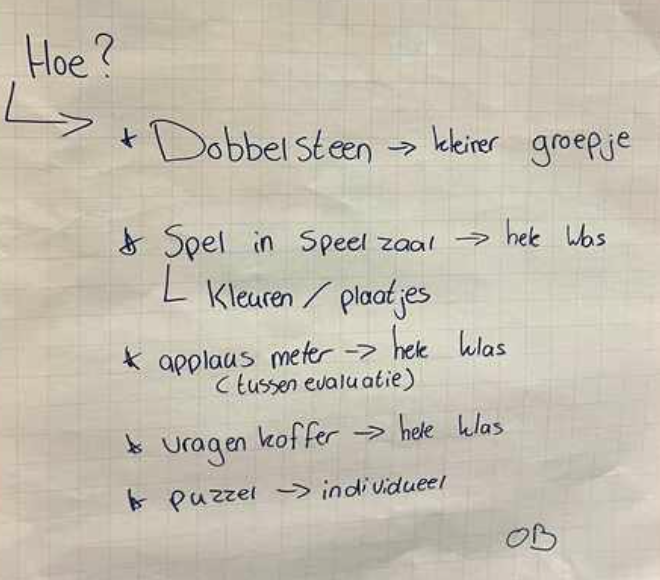 Hoe?
* Dobbelsteen → kleiner groepje
* Spel in Speelzaal → hele klas
Kleuren / plaatjes
* applausmeter → hele klas
(tussenevaluatie)
* vragenkoffer → hele klas
* puzzel → individueel
OB